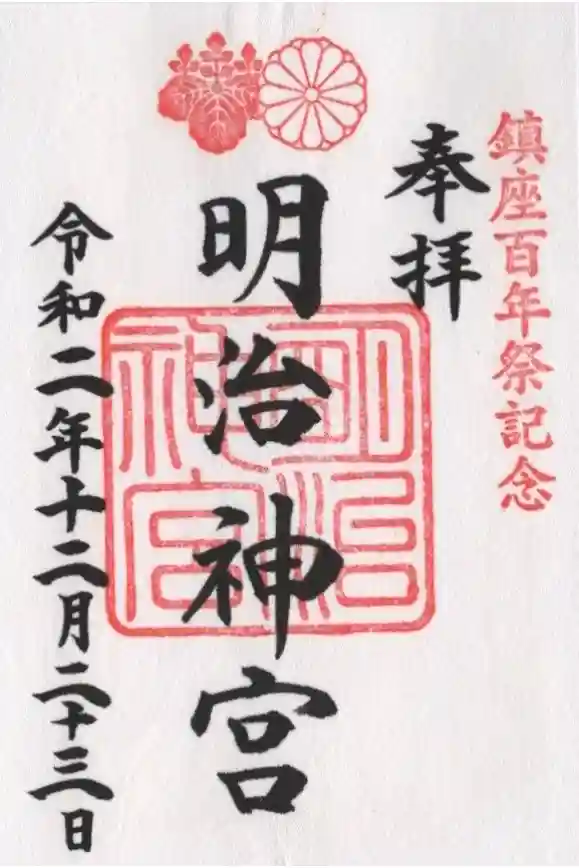 鎮座百年祭記念
奉拝
明治神宮
明治神宮
令和二年十二月二十三日